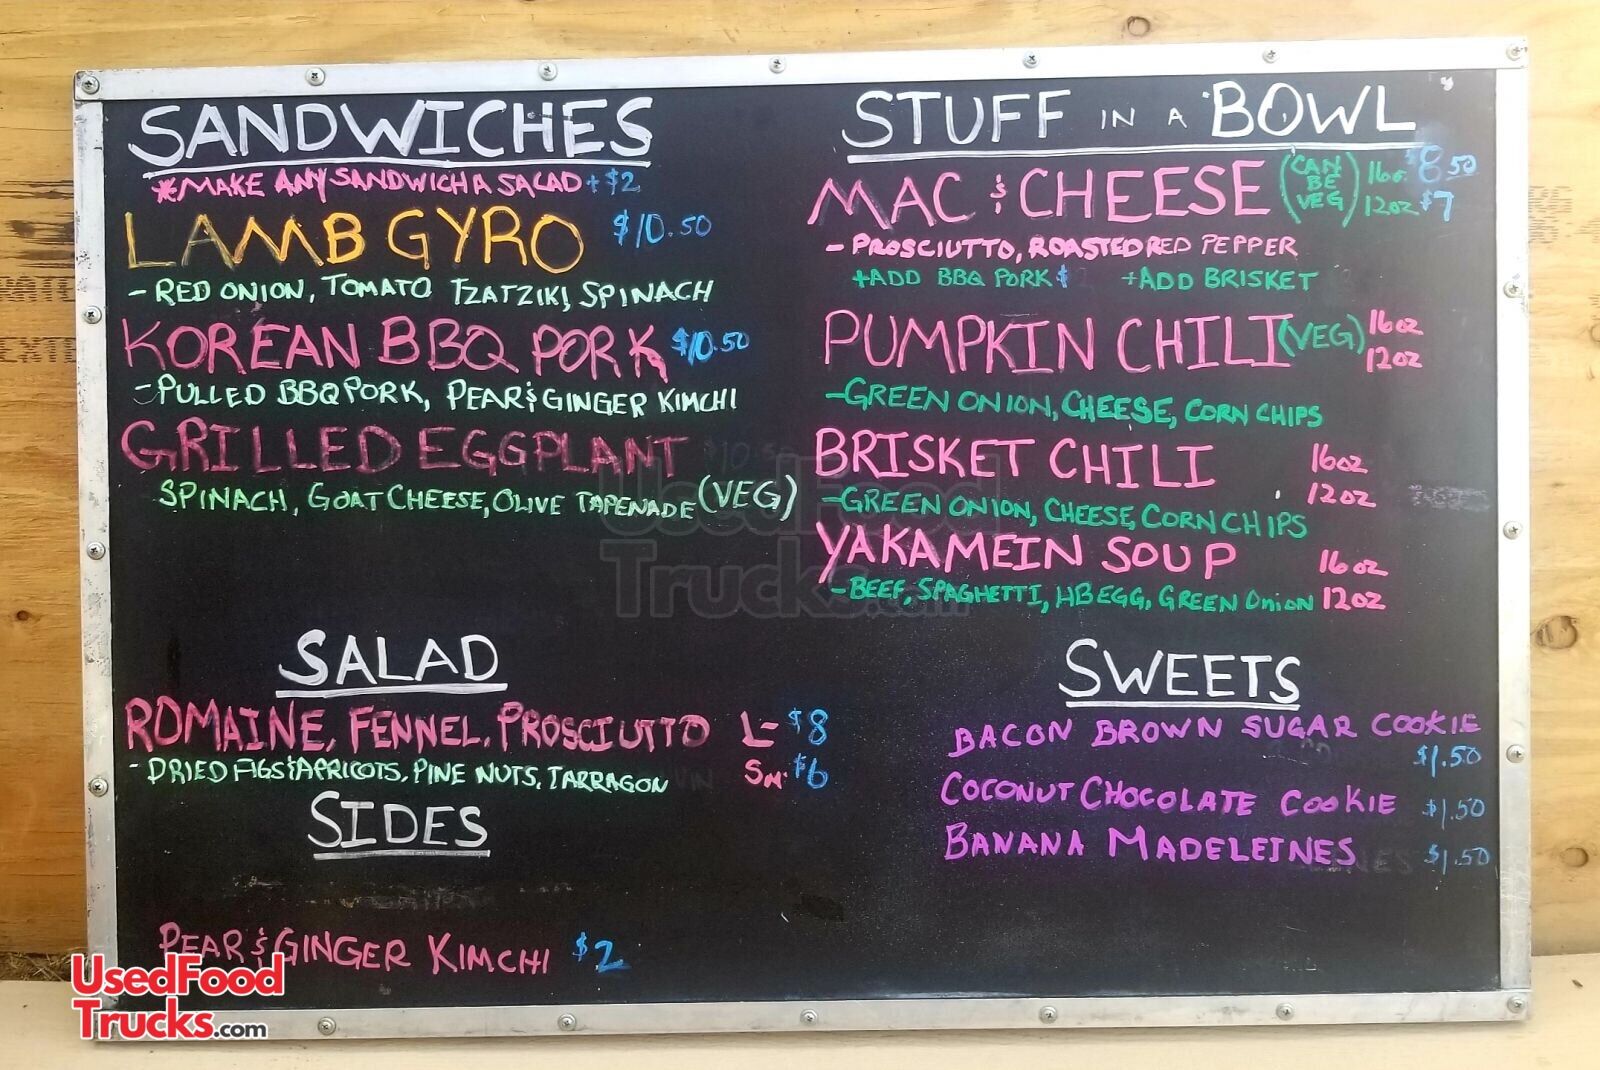 SANDWICHES
*MAKE ANY SANDWICH A SALAD + $2
LAMB GYRO $10.50
- RED ONION, TOMATO TZATZIKI, SPINACH
KOREAN BBQ PORK $10.50
- PULLED BBQ PORK, PEAR & GINGER KIMCHI
GRILLED EGGPLANT $10.50
SPINACH, GOAT CHEESE, OLIVE TAPENADE (VEG)
SALAD
ROMAINE, FENNEL, PROSCIUTTO L- $8
- DRIED FIGS & APRICOTS, PINE NUTS, TARRAGON Sm. $6
SIDES
PEAR & GINGER KIMCHI $2
STUFF IN A BOWL
MAC & CHEESE (CAN BE VEG) 16oz $8.50
12oz $7
- PROSCIUTTO, ROASTED RED PEPPER
+ADD BBQ PORK $2 +ADD BRISKET
PUMPKIN CHILI (VEG) 16oz
12oz
- GREEN ONION, CHEESE, CORN CHIPS
BRISKET CHILI 16oz
12oz
- GREEN ONION, CHEESE, CORN CHIPS
YAKAMEIN SOUP 16oz
- BEEF, SPAGHETTI, HB EGG, GREEN ONION 12oz
SWEETS
BACON BROWN SUGAR COOKIE
$1.50
COCONUT CHOCOLATE COOKIE $1.50
BANANA MADELEINES $1.50
UsedFood
Trucks.com
UsedFood
Trucks.com